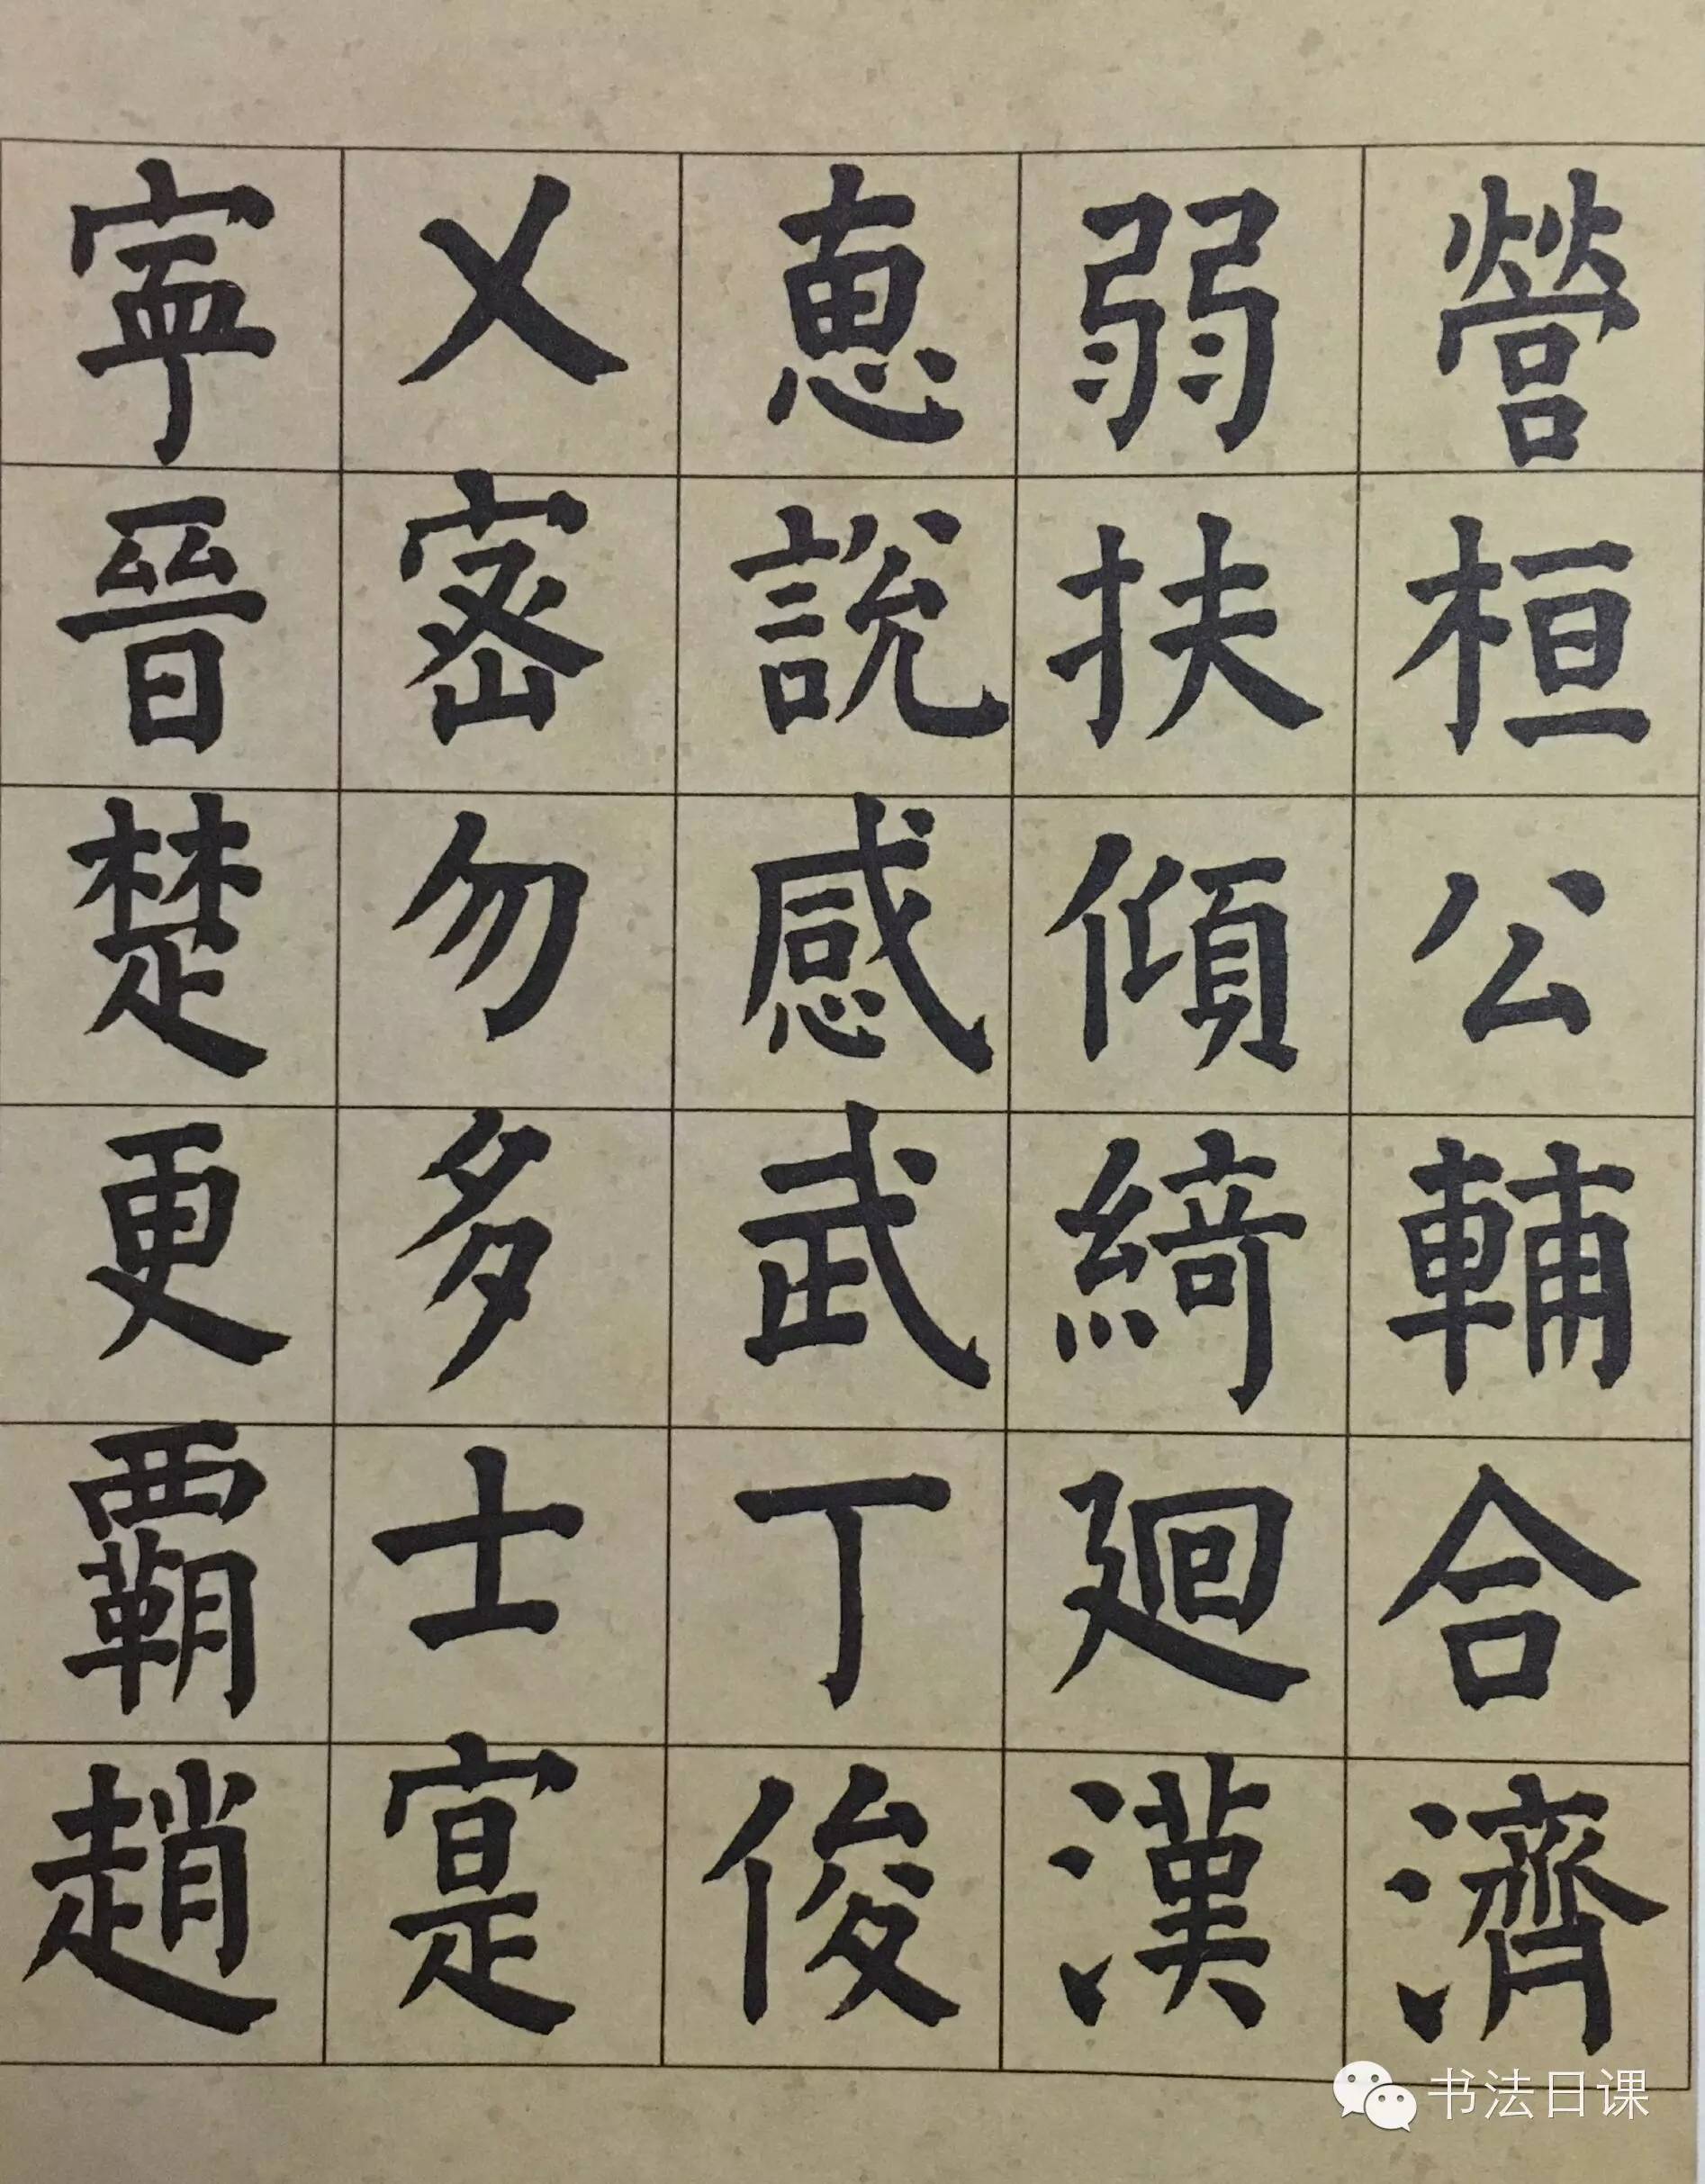 營桓公輔合濟
弱扶傾綺迴漢
恵說感武丁俊
乂密勿多士寔
寧晉楚更霸趙
书法日课